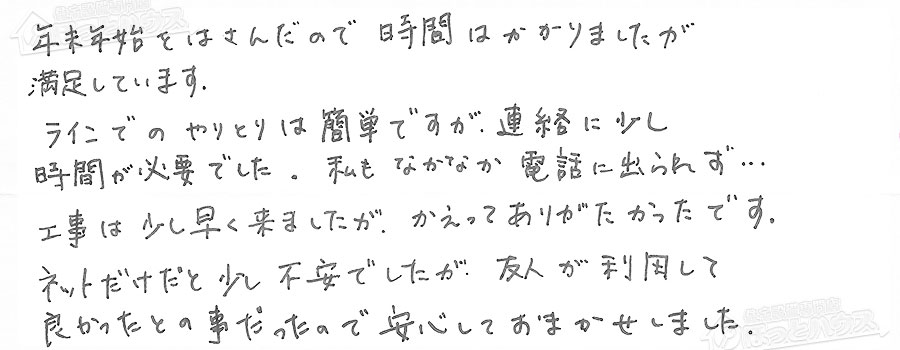 年末年始をはさんだので 時間はかかりましたが
満足しています.
ラインでの やりとりは 簡単ですが、連絡に 少し
時間が必要でした。私も なかなか 電話に出られず…
工事は 少し早く来ましたが、かえってありがたかったです。
ネットだけだと 少し 不安でしたが、友人が 利用して
良かったとの事だったので 安心しておまかせしました。